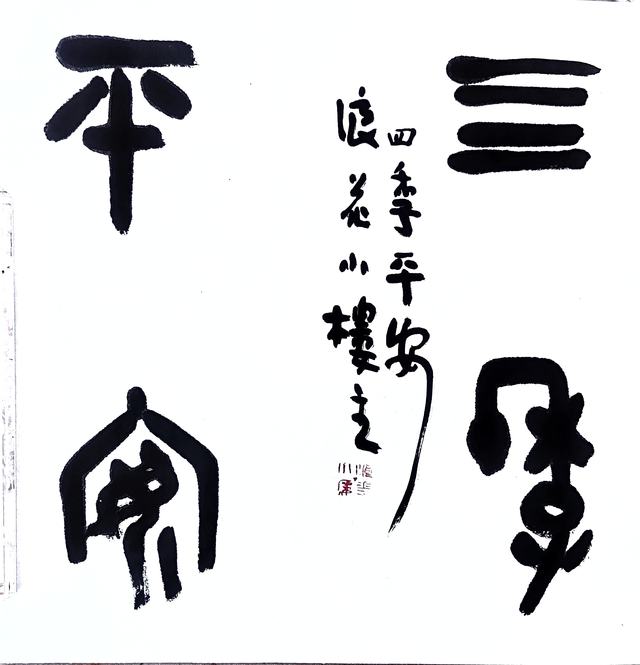 亖季
平安
四季平安
浪花小樓主